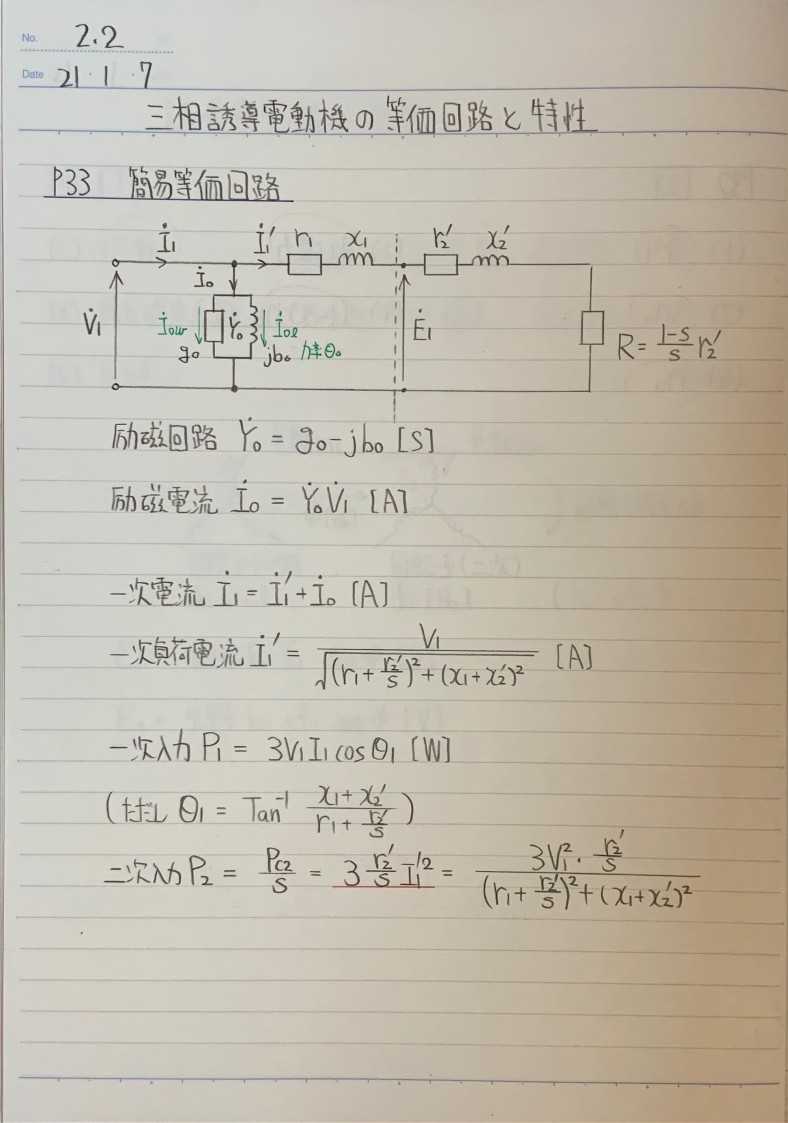 No. 2.2
Date 21・1・7
三相誘導電動機の等価回路と特性
P33 簡易等価回路
İ₁ İ₁′ r₁ x₁ r₂′ x₂′
İ₀
V̇₁ İ₀w Ẏ₀ İ₀l Ė₁
g₀ jb₀ 力率θ₀ R = (1-s)/s r₂′
励磁回路 Ẏ₀ = g₀-jb₀ [S]
励磁電流 İ₀ = Ẏ₀V̇₁ [A]
一次電流 İ₁ = İ₁′+İ₀ [A]
一次負荷電流 İ₁′ = V₁/√((r₁+r₂′/s)²+(x₁+x₂′)²) [A]
一次入力 P₁ = 3V₁I₁cosθ₁ [W]
(ただし θ₁ = Tan⁻¹ (x₁+x₂′)/(r₁+r₂′/s))
二次入力 P₂ = Pc₂/s = 3 r₂′/s I₁′² = (3V₁²・r₂′/s)/((r₁+r₂′/s)²+(x₁+x₂′)²)